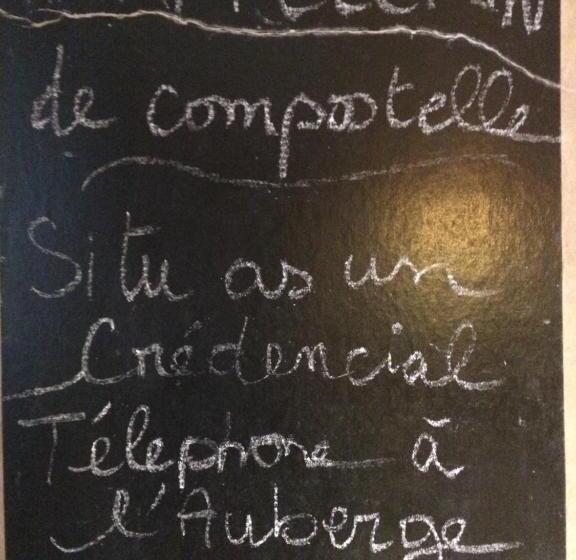 de compostelle
Si tu as un
Crédencial
Télephone à
l'Auberge